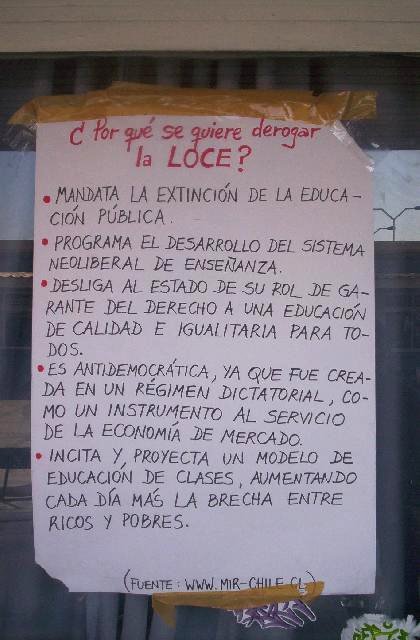 ¿Por qué se quiere derogar
la LOCE?
• MANDATA LA EXTINCIÓN DE LA EDUCA-
CIÓN PÚBLICA.
• PROGRAMA EL DESARROLLO DEL SISTEMA
NEOLIBERAL DE ENSEÑANZA.
• DESLIGA AL ESTADO DE SU ROL DE GA-
RANTE DEL DERECHO A UNA EDUCACIÓN
DE CALIDAD E IGUALITARIA PARA TO-
DOS.
• ES ANTIDEMOCRÁTICA, YA QUE FUE CREA-
DA EN UN RÉGIMEN DICTATORIAL, CO-
MO UN INSTRUMENTO AL SERVICIO
DE LA ECONOMÍA DE MERCADO.
• INCITA Y, PROYECTA UN MODELO DE
EDUCACIÓN DE CLASES, AUMENTANDO
CADA DÍA MÁS LA BRECHA ENTRE
RICOS Y POBRES.
(FUENTE: WWW.MIR-CHILE.CL)